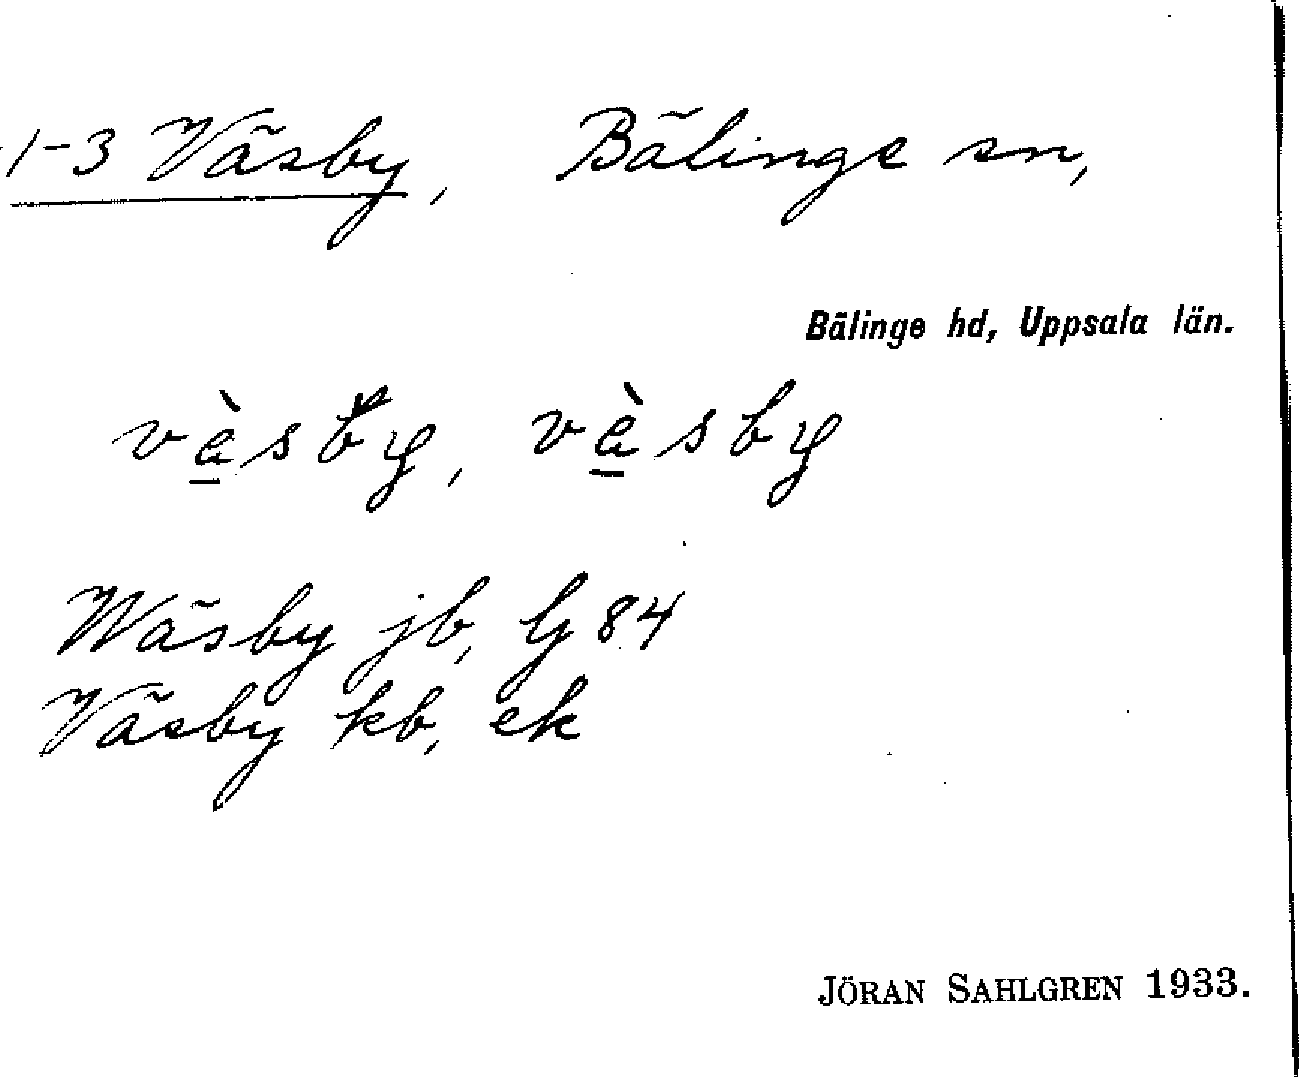 1-3 Väsby, Bälinge sn,
Bälinge hd, Uppsala län.
vὰsby, vὰsby
Wäsby jb, G 84
Väsby kb, ek
JÖRAN SAHLGREN 1933.